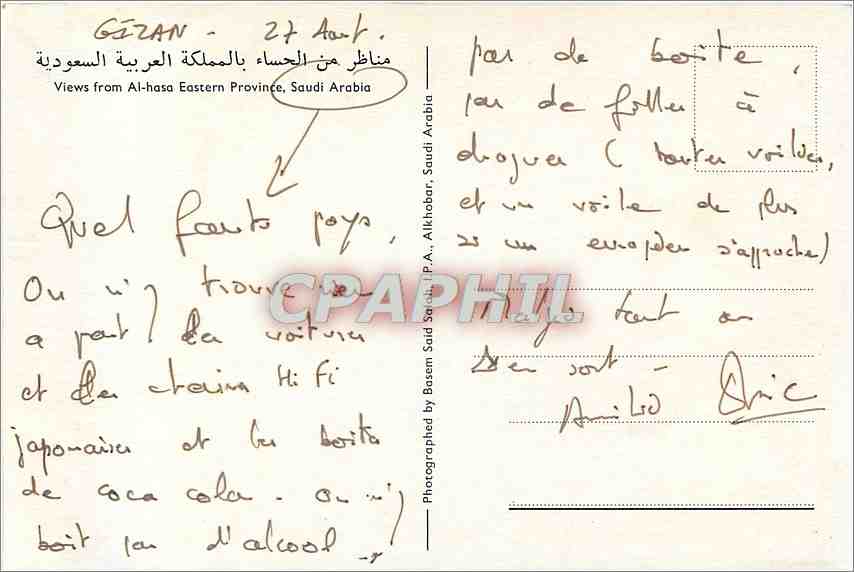 GIZAN - 27 Aout.
مناظر من الحساء بالمملكة العربية السعودية
Views from Al-hasa Eastern Province, Saudi Arabia
Quel pays,
On n'y trouve rien
a part les voitures
et les chaines Hi Fi
japonaises et les boites
de coca cola - on n'y
boit pas d'alcool -
Photographed by Basem Said Salah, I.P.A., Alkhobar, Saudi Arabia
CPAPHIL
pas de boite,
pas de filles à
draguer (toutes voilées,
et un voile de plus
si un européen s'approche)
Malgré tout on
s'en sort -
Amitié Eric